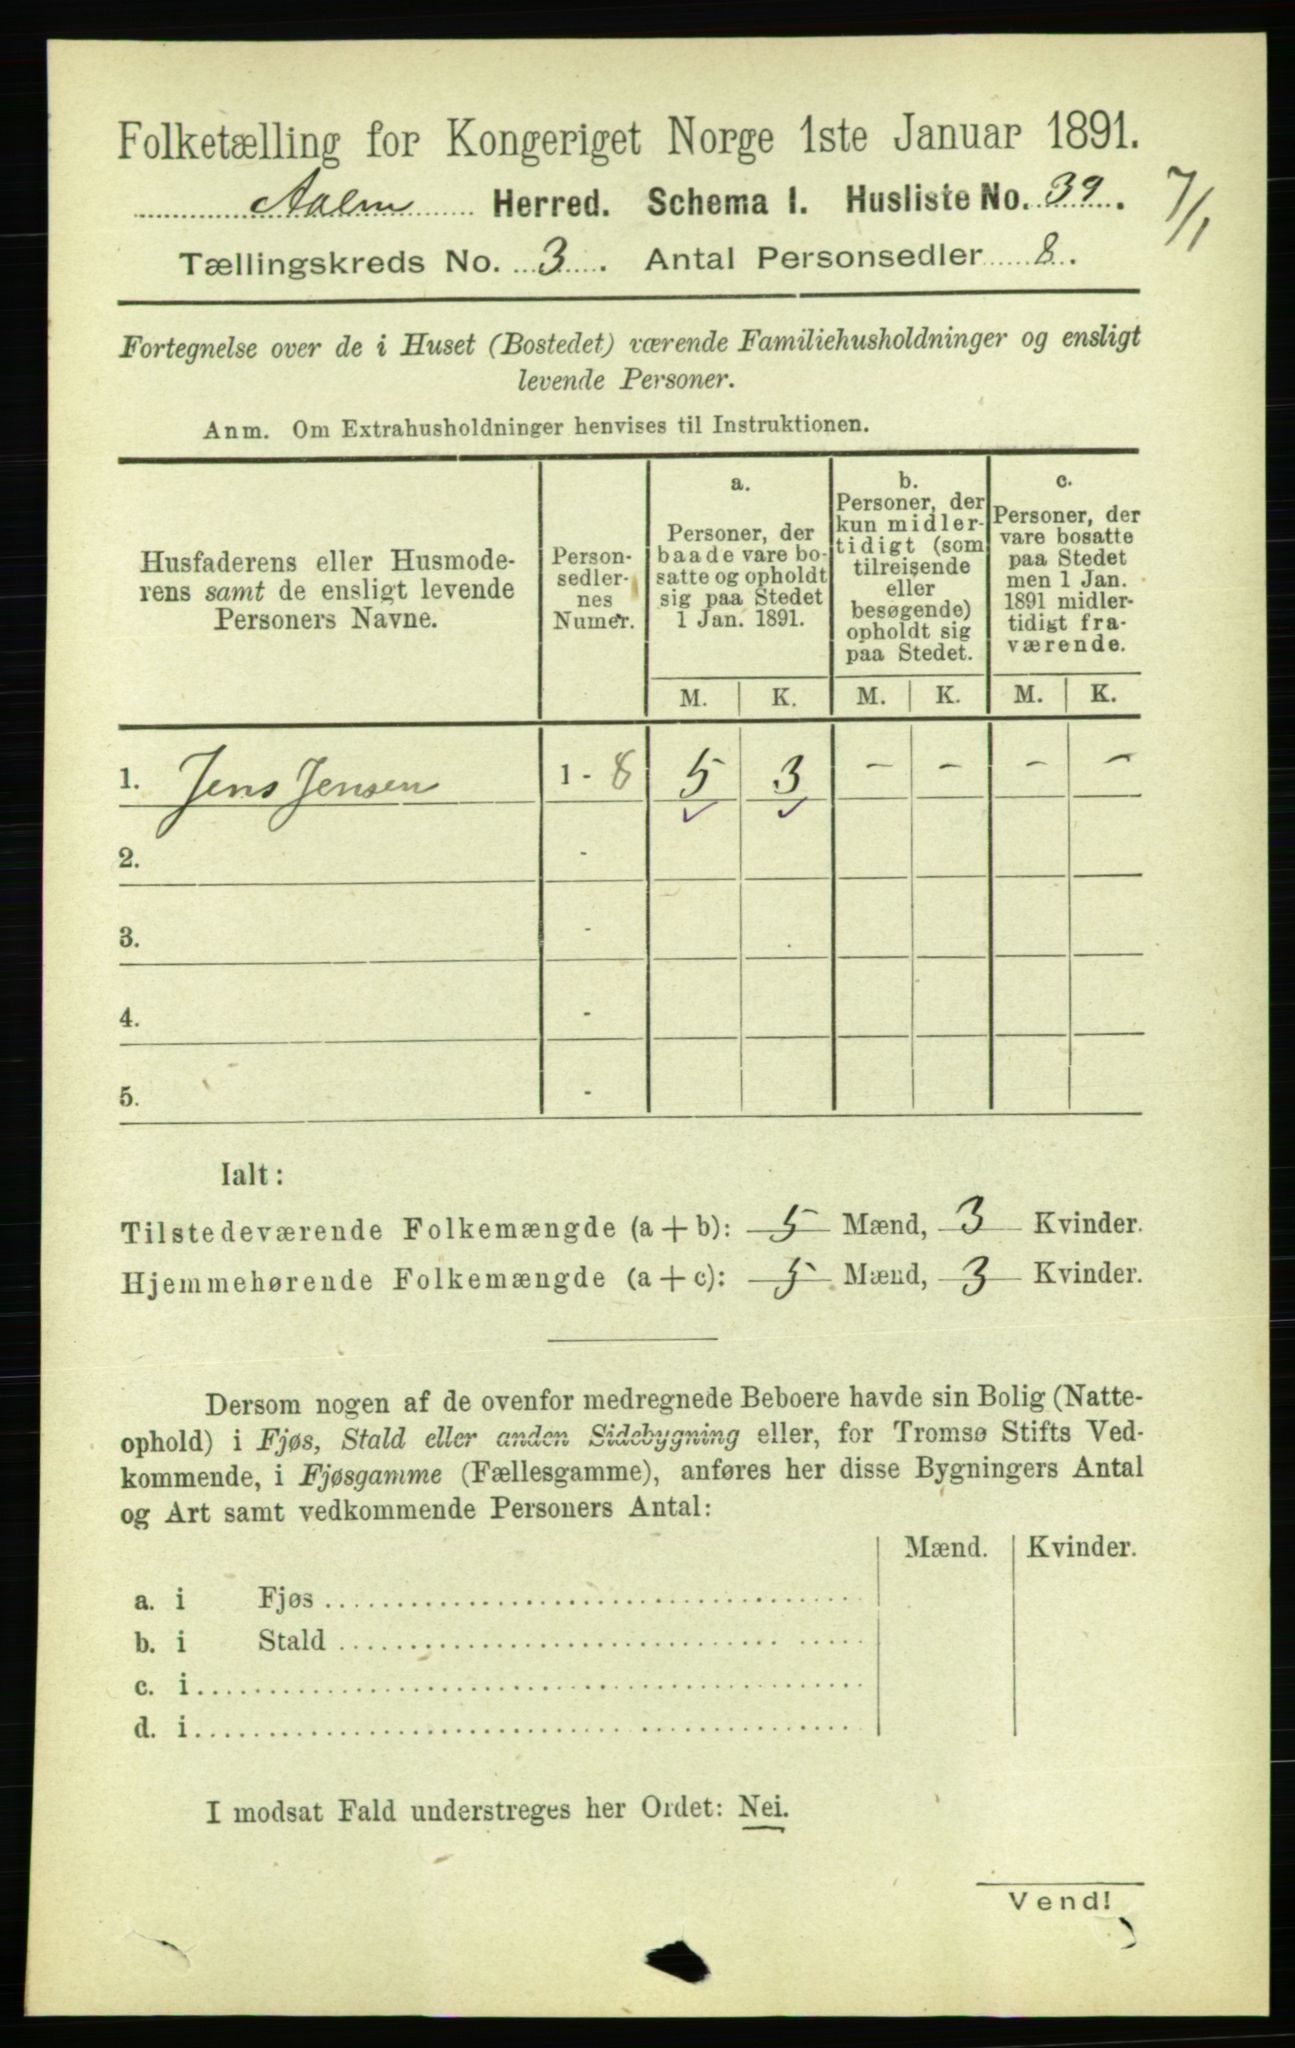 Folketælling for Kongeriget Norge 1ste Januar 1891.
Herred. Schema I. Husliste No. 39.
7/1
Tællingskreds No. 3. Antal Personsedler 8.
Fortegnelse over de i Huset (Bostedet) værende Familiehusholdninger og ensligt
levende Personer.
Anm. Om Extrahusholdninger henvises til Instruktionen.
Husfaderens eller Husmode-
rens samt de ensligt levende
Personers Navne.
Person-
sedler-
nes
Numer.
a.
Personer, der
baade vare bo-
satte og opholdt
sig paa Stedet
1 Jan. 1891.
b.
Personer, der
kun midler-
tidigt (som
tilreisende
eller
besøgende)
opholdt sig
paa Stedet.
c.
Personer, der
vare bosatte
paa Stedet
men 1 Jan.
1891 midler-
tidigt fra-
værende.
M. K. M. K. M. K.
1. Jens Jensen 1 - 8 5 3 - - - -
2. -
3. -
4. -
5. -
Ialt:
Tilstedeværende Folkemængde (a + b): 5 Mænd, 3 Kvinder.
Hjemmehørende Folkemængde (a + c): 5 Mænd, 3 Kvinder.
Dersom nogen af de ovenfor medregnede Beboere havde sin Bolig (Natte-
ophold) i Fjøs, Stald eller anden Sidebygning eller, for Tromsø Stifts Ved-
kommende, i Fjøsgamme (Fællesgamme), anføres her disse Bygningers Antal
og Art samt vedkommende Personers Antal:
Mænd. Kvinder.
a. i Fjøs
b. i Stald
c. i
d. i
I modsat Fald understreges her Ordet: Nei.
Vend!